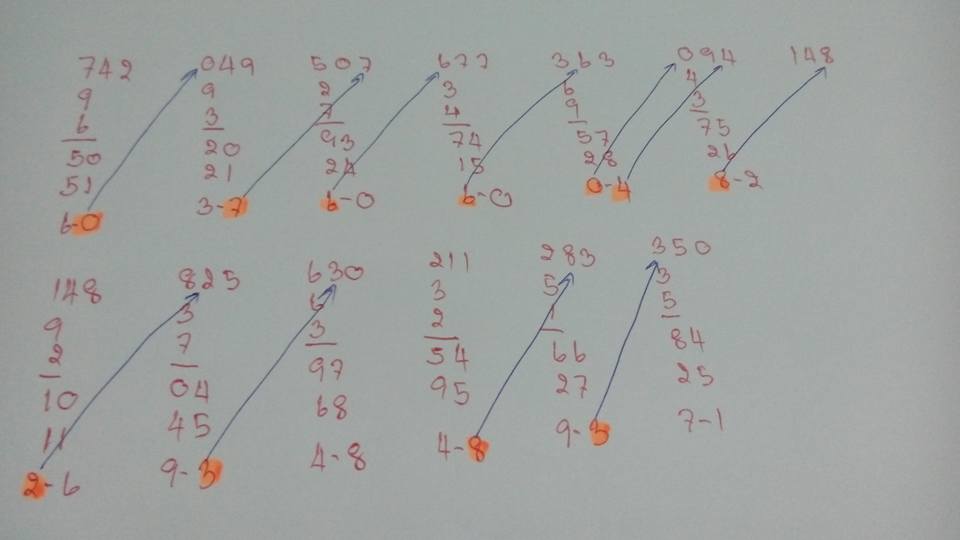 742 049 507 677 363 094 148
9 9 2 3 6 4
6 3 7 4 9 3
50 20 93 74 57 75
51 21 24 15 28 26
6-0 3-7 6-0 6-0 0-4 8-2
148 825 630 211 283 350
9 3 6 3 5 3
2 7 3 2 1 5
10 04 97 54 66 84
11 45 68 95 27 25
2-6 9-3 4-8 4-8 9-3 7-1